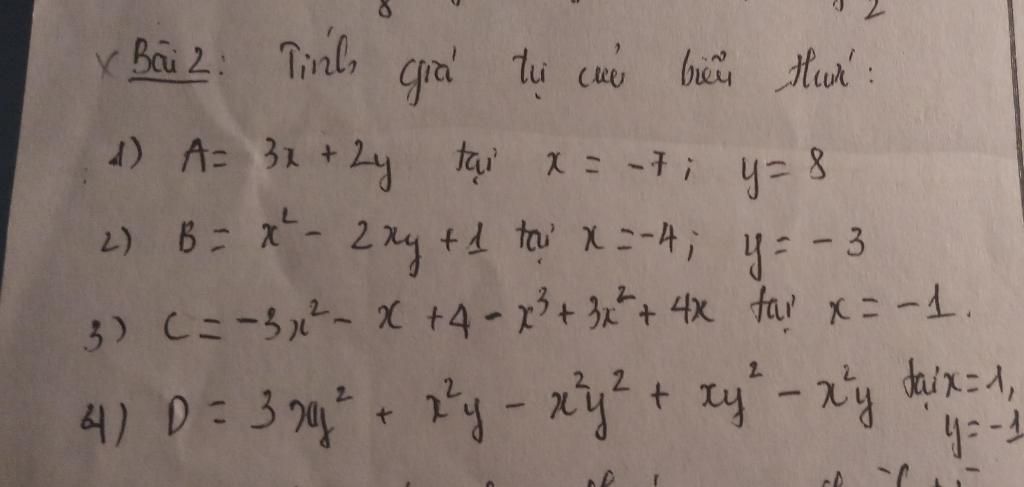 x Bài 2: Tính giá trị của biểu thức:
1) A = 3x + 2y tại x = -7; y = 8
2) B = x² - 2xy + 1 tại x = -4; y = -3
3) C = -3x² - x + 4 - x³ + 3x² + 4x tại x = -1.
4) D = 3xy² + x²y - x²y² + xy² - x²y tại x = 1,
y = -1